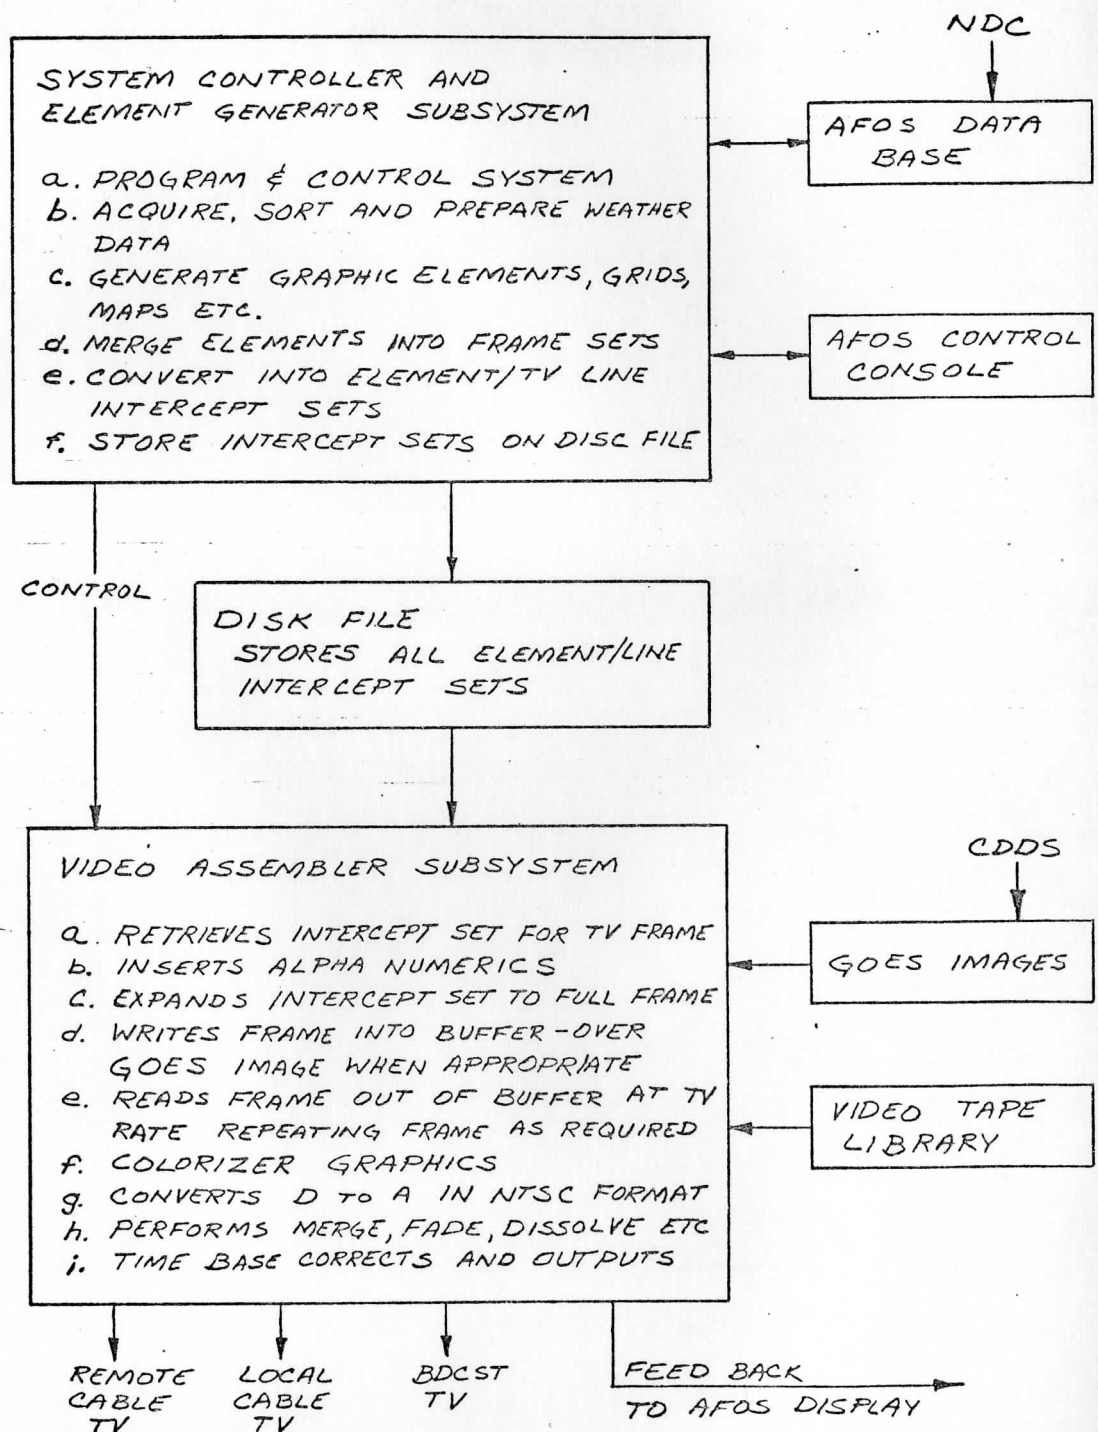 NDC
SYSTEM CONTROLLER AND
ELEMENT GENERATOR SUBSYSTEM
a. PROGRAM & CONTROL SYSTEM
b. ACQUIRE, SORT AND PREPARE WEATHER
DATA
c. GENERATE GRAPHIC ELEMENTS, GRIDS,
MAPS ETC.
d. MERGE ELEMENTS INTO FRAME SETS
e. CONVERT INTO ELEMENT/TV LINE
INTERCEPT SETS
f. STORE INTERCEPT SETS ON DISC FILE
AFOS DATA
BASE
AFOS CONTROL
CONSOLE
CONTROL
DISK FILE
STORES ALL ELEMENT/LINE
INTERCEPT SETS
VIDEO ASSEMBLER SUBSYSTEM
a. RETRIEVES INTERCEPT SET FOR TV FRAME
b. INSERTS ALPHA NUMERICS
c. EXPANDS INTERCEPT SET TO FULL FRAME
d. WRITES FRAME INTO BUFFER-OVER
GOES IMAGE WHEN APPROPRIATE
e. READS FRAME OUT OF BUFFER AT TV
RATE REPEATING FRAME AS REQUIRED
f. COLORIZER GRAPHICS
g. CONVERTS D TO A IN NTSC FORMAT
h. PERFORMS MERGE, FADE, DISSOLVE ETC
i. TIME BASE CORRECTS AND OUTPUTS
CDDS
GOES IMAGES
VIDEO TAPE
LIBRARY
REMOTE
CABLE
TV
LOCAL
CABLE
TV
BDCST
TV
FEED BACK
TO AFOS DISPLAY